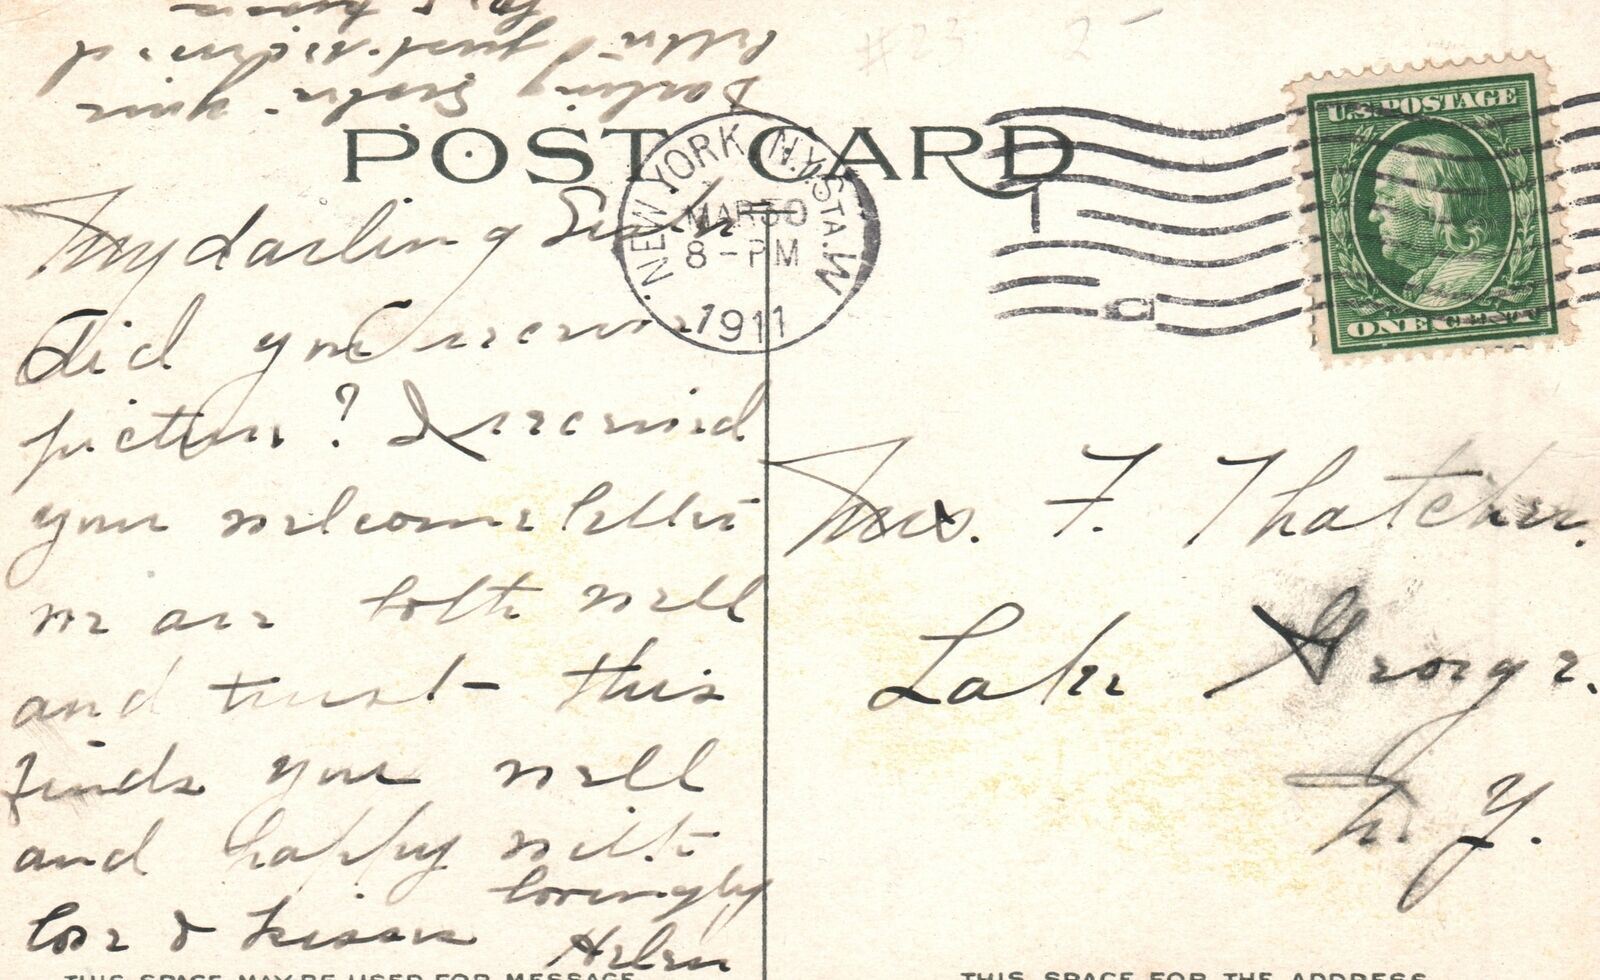 Darling Sister your
letter just received
POST CARD
#23 2-
NEW YORK, N.Y. STA. W.
MAR 30
8-PM
1911
U.S. POSTAGE
ONE CENT
My darling
Did you receive
picture? I received
your welcome letter
we are both well
and trust this
finds you well
and happy with
love & kisses lovingly
Helen
Mrs. F. Thatcher.
Lake George.
N. Y.
THIS SPACE MAY BE USED FOR MESSAGE
THIS SPACE FOR THE ADDRESS